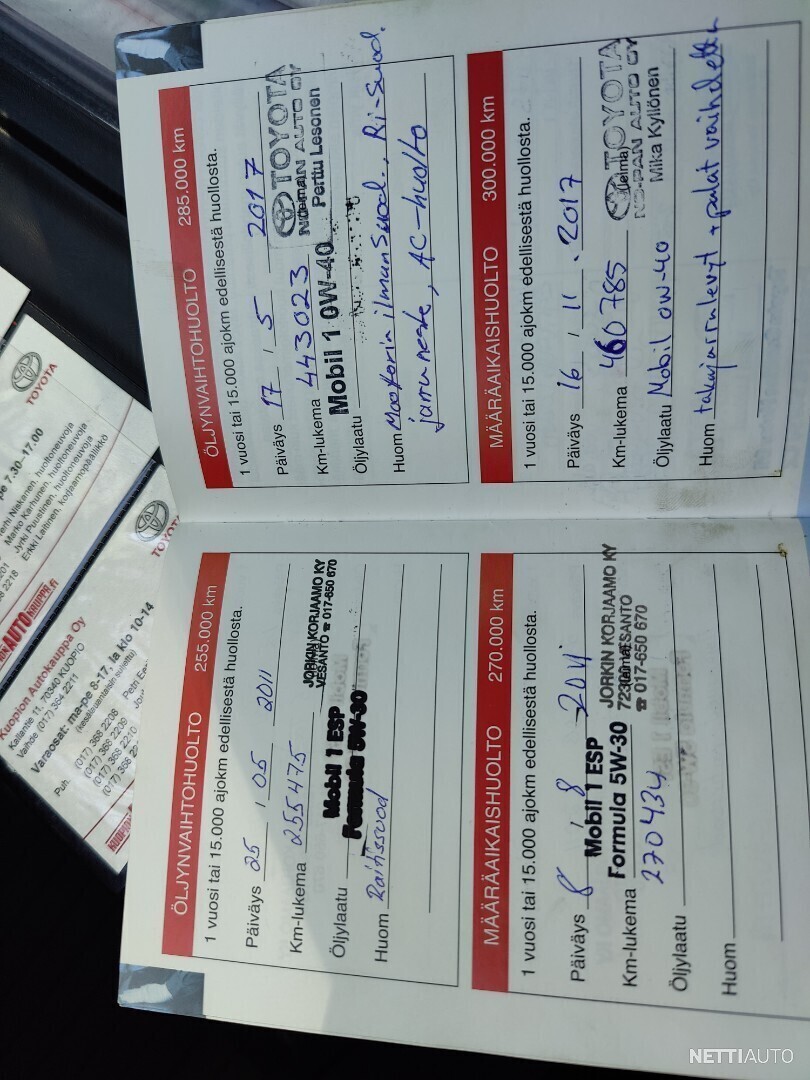 ÖLJYNVAIHTOHUOLTO 255.000 km
1 vuosi tai 15.000 ajokm edellisestä huollosta.
Päiväys 25 / 05 2011
Km-lukema 255475
JORKIN KORJAAMO KY
VESANTO ☎ 017-650 670
Mobil 1 ESP
Öljylaatu Formula 5W-30
Huom Raitissuod
MÄÄRÄAIKAISHUOLTO 270.000 km
1 vuosi tai 15.000 ajokm edellisestä huollosta.
Päiväys 8 / 8 2011
Mobil 1 ESP
Formula 5W-30
JORKIN KORJAAMO KY
VESANTO
☎ 017-650 670
Km-lukema 270434
Öljylaatu
Huom
ÖLJYNVAIHTOHUOLTO 285.000 km
1 vuosi tai 15.000 ajokm edellisestä huollosta.
Päiväys 17 / 5 2017
TOYOTA
NO-PAN AUTO OY
Perttu Lesonen
Km-lukema 443023
Mobil 1 0W-40
Öljylaatu
Huom Moottorin ilmansuod., Ri-suod.
jarruneste, AC-huolto
MÄÄRÄAIKAISHUOLTO 300.000 km
1 vuosi tai 15.000 ajokm edellisestä huollosta.
Päiväys 16 / 11 . 2017
TOYOTA
NO-PAN AUTO OY
(leima)
Mika Kyllönen
Km-lukema 460785
Öljylaatu Mobil 0w-40
Huom takajarrulevyt + palat vaihdettu
TOYOTA
7.30-17.00
huoltoneuvoja
Marko Karhunen, huoltoneuvoja
Jyrki Puustinen, huoltoneuvoja
Erkki Laitinen, korjaamopäällikkö
TOYOTA
Kuopion Autokauppa Oy
Kallantie 11, 70340 KUOPIO
Vaihde (017) 364 2211
Varaosat: ma-pe 8-17, la klo 10-14
Puh. (017) 368 2208
(017) 368 2209
(017) 368 2210
NETTIAUTO